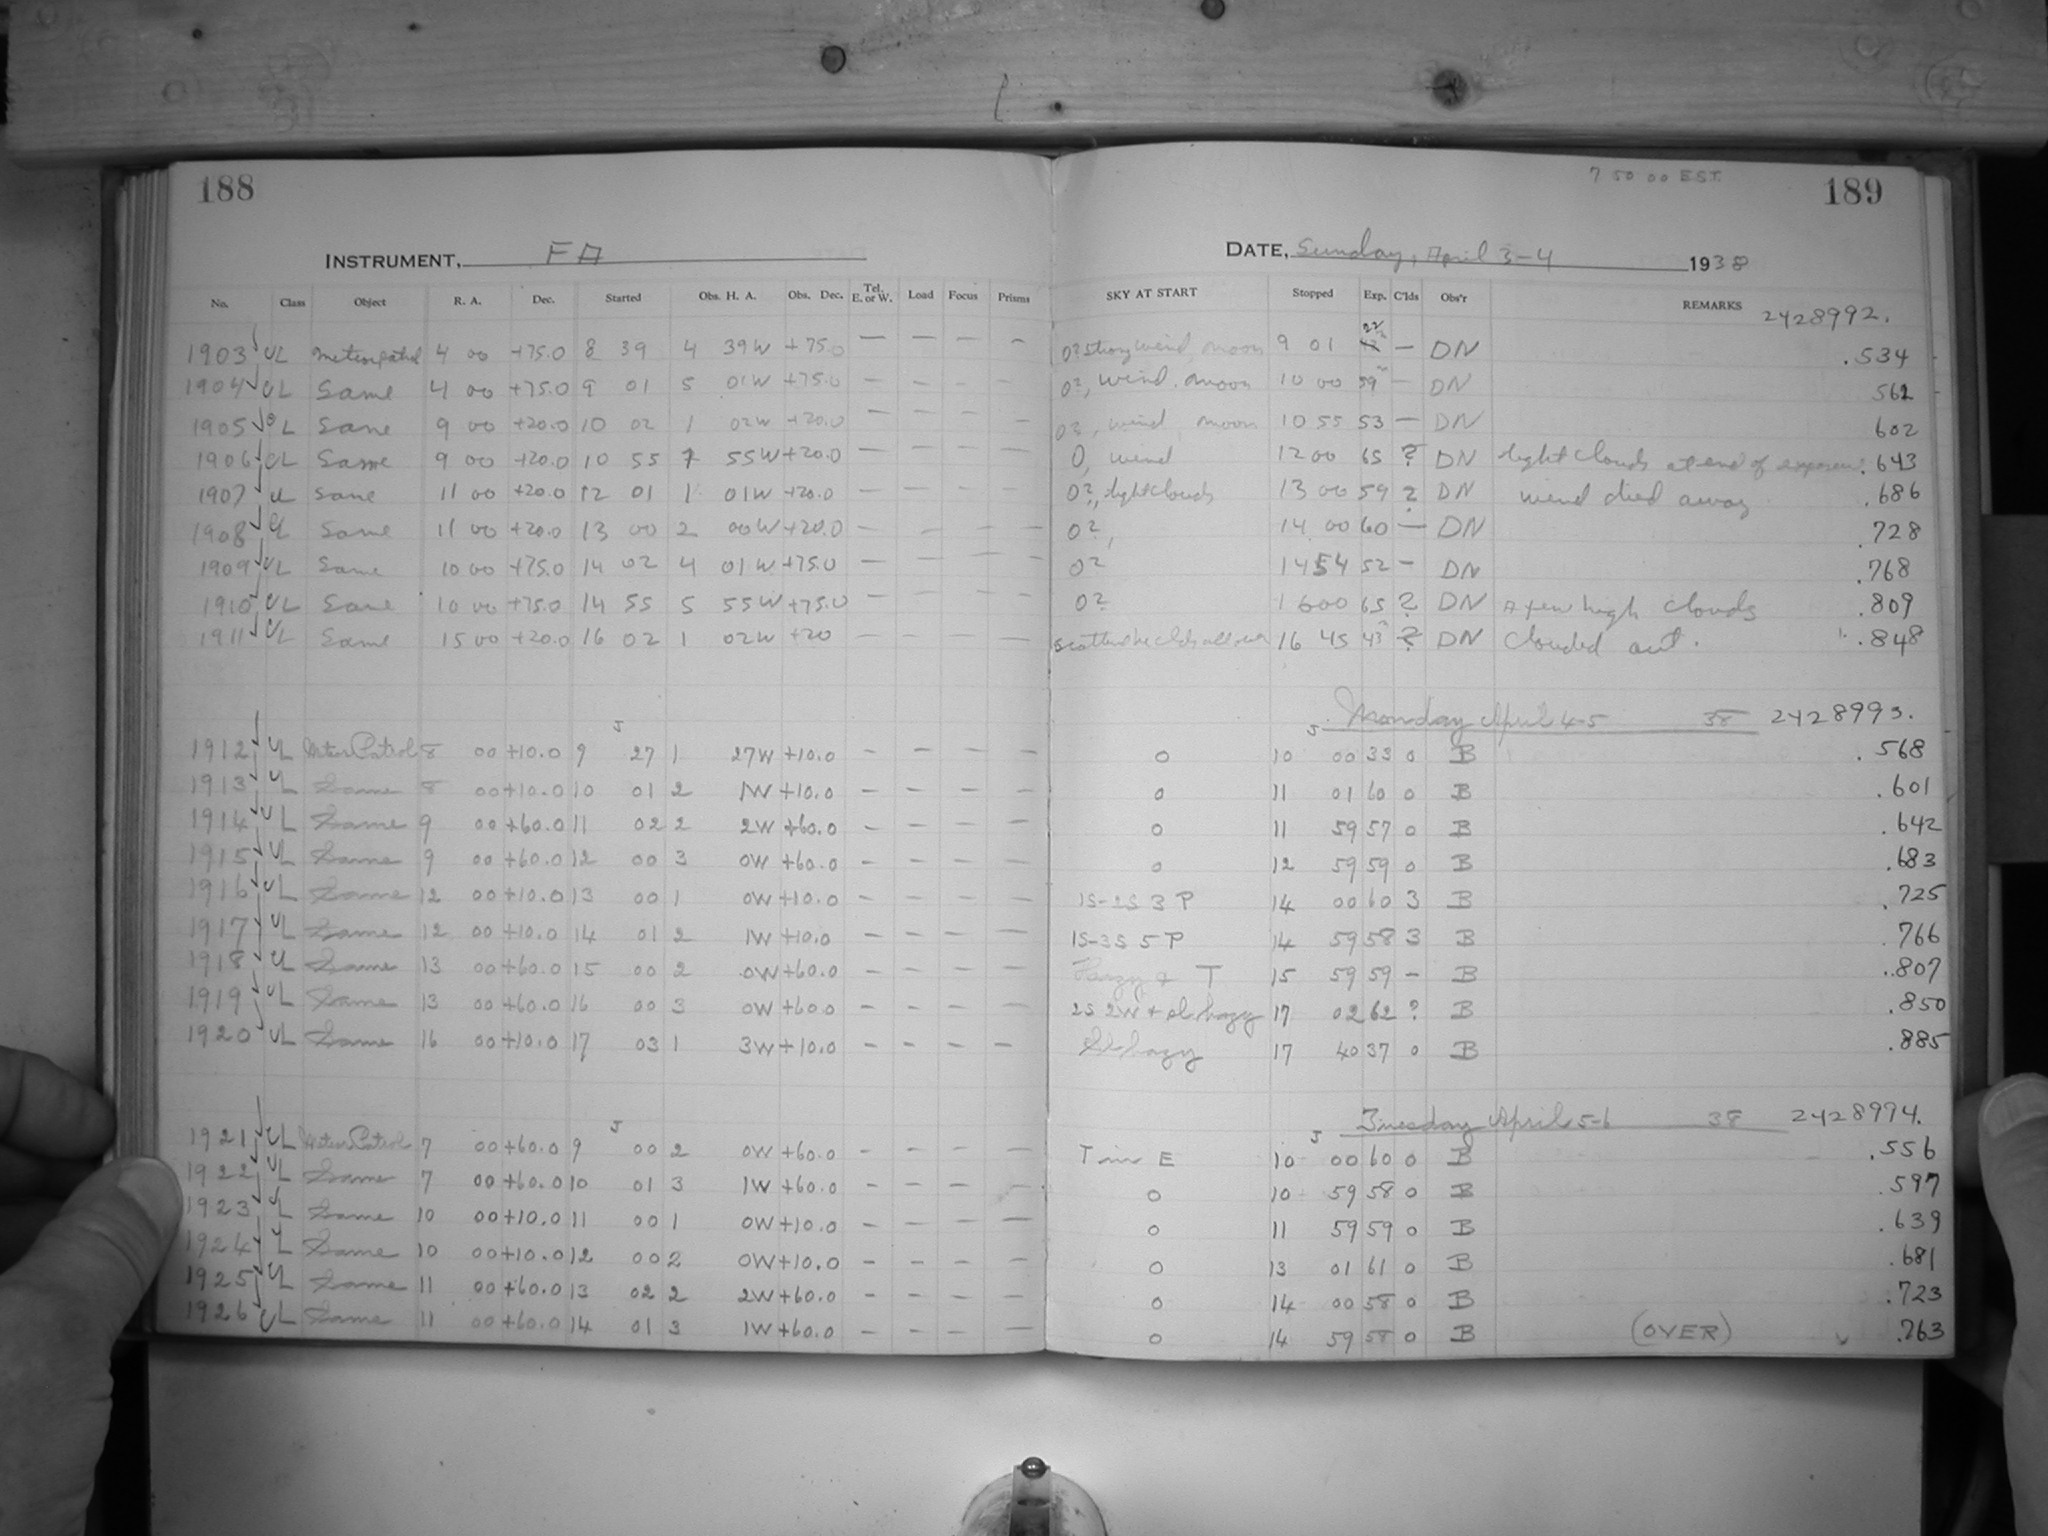 188
INSTRUMENT, FA
No. Class Object R. A. Dec. Started Obs. H. A. Obs. Dec. Tel. E. or W. Load Focus Prisms
1903 UL Meteor patrol 4 00 +75.0 8 39 4 39W +75.0 — — — —
1904 UL Same 4 00 +75.0 9 01 5 01W +75.0 — — — —
1905 UL Same 9 00 +20.0 10 02 1 02W +20.0 — — — —
1906 UL Same 9 00 +20.0 10 55 1 55W +20.0 — — — —
1907 UL Same 11 00 +20.0 12 01 1 01W +20.0 — — — —
1908 UL Same 11 00 +20.0 13 00 2 00W +20.0 — — — —
1909 UL Same 10 00 +75.0 14 02 4 01W +75.0 — — — —
1910 UL Same 10 00 +75.0 14 55 5 55W +75.0 — — — —
1911 UL Same 15 00 +20.0 16 02 1 02W +20 — — — —
J
1912 UL Meteor Patrol 8 00 +10.0 9 27 1 27W +10.0 — — — —
1913 UL Same 8 00 +10.0 10 01 2 1W +10.0 — — — —
1914 UL Same 9 00 +60.0 11 02 2 2W +60.0 — — — —
1915 UL Same 9 00 +60.0 12 00 3 0W +60.0 — — — —
1916 UL Same 12 00 +10.0 13 00 1 0W +10.0 — — — —
1917 UL Same 12 00 +10.0 14 01 2 1W +10.0 — — — —
1918 UL Same 13 00 +60.0 15 00 2 0W +60.0 — — — —
1919 UL Same 13 00 +60.0 16 00 3 0W +60.0 — — — —
1920 UL Same 16 00 +10.0 17 03 1 3W +10.0 — — — —
J
1921 UL Meteor Patrol 7 00 +60.0 9 00 2 0W +60.0 — — — —
1922 UL Same 7 00 +60.0 10 01 3 1W +60.0 — — — —
1923 UL Same 10 00 +10.0 11 00 1 0W +10.0 — — — —
1924 UL Same 10 00 +10.0 12 00 2 0W +10.0 — — — —
1925 UL Same 11 00 +60.0 13 02 2 2W +60.0 — — — —
1926 UL Same 11 00 +60.0 14 01 3 1W +60.0 — — — —
7 50 00 EST.
189
DATE, Sunday, April 3-4 1938
SKY AT START Stopped Exp. C'lds Obs'r REMARKS
2428992.
0? strong wind, moon 9 01 22 — DN .534
0?, wind, moon 10 00 59 — DN 562
0?, wind moon 10 55 53 — DN 602
0, wind 12 00 65 ? DN light clouds at end of exposure .643
0?, light clouds 13 00 59 ? DN wind died away .686
0?, 14 00 60 — DN .728
0? 14 54 52 — DN .768
0? 16 00 65 ? DN A few high clouds .809
16 45 43 ? DN Clouded out. .848
J Monday April 4-5 38 2428993.
0 10 00 33 0 B .568
0 11 01 60 0 B .601
0 11 59 57 0 B .642
0 12 59 59 0 B .683
1S-2S 3 P 14 00 60 3 B .725
1S-3S 5 P 14 59 58 3 B .766
Hazy & T 15 59 59 — B .807
2S 2W + sl. hazy 17 02 62 ? B .850
Sl. hazy 17 40 37 0 B .885
J Tuesday April 5-6 38 2428994.
T in E 10 00 60 0 B .556
0 10 59 58 0 B .597
0 11 59 59 0 B .639
0 13 01 61 0 B .681
0 14 00 58 0 B .723
0 14 59 58 0 B (OVER) .763